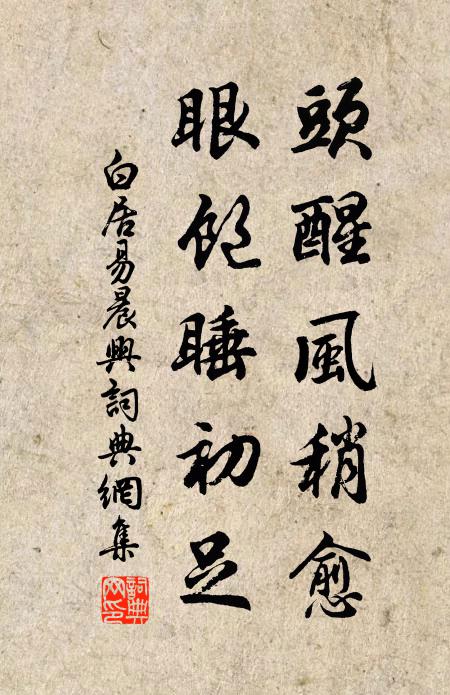 頭醒風稍愈
眼飽睡初足
白居易晨興詞典網集
詞典
網印